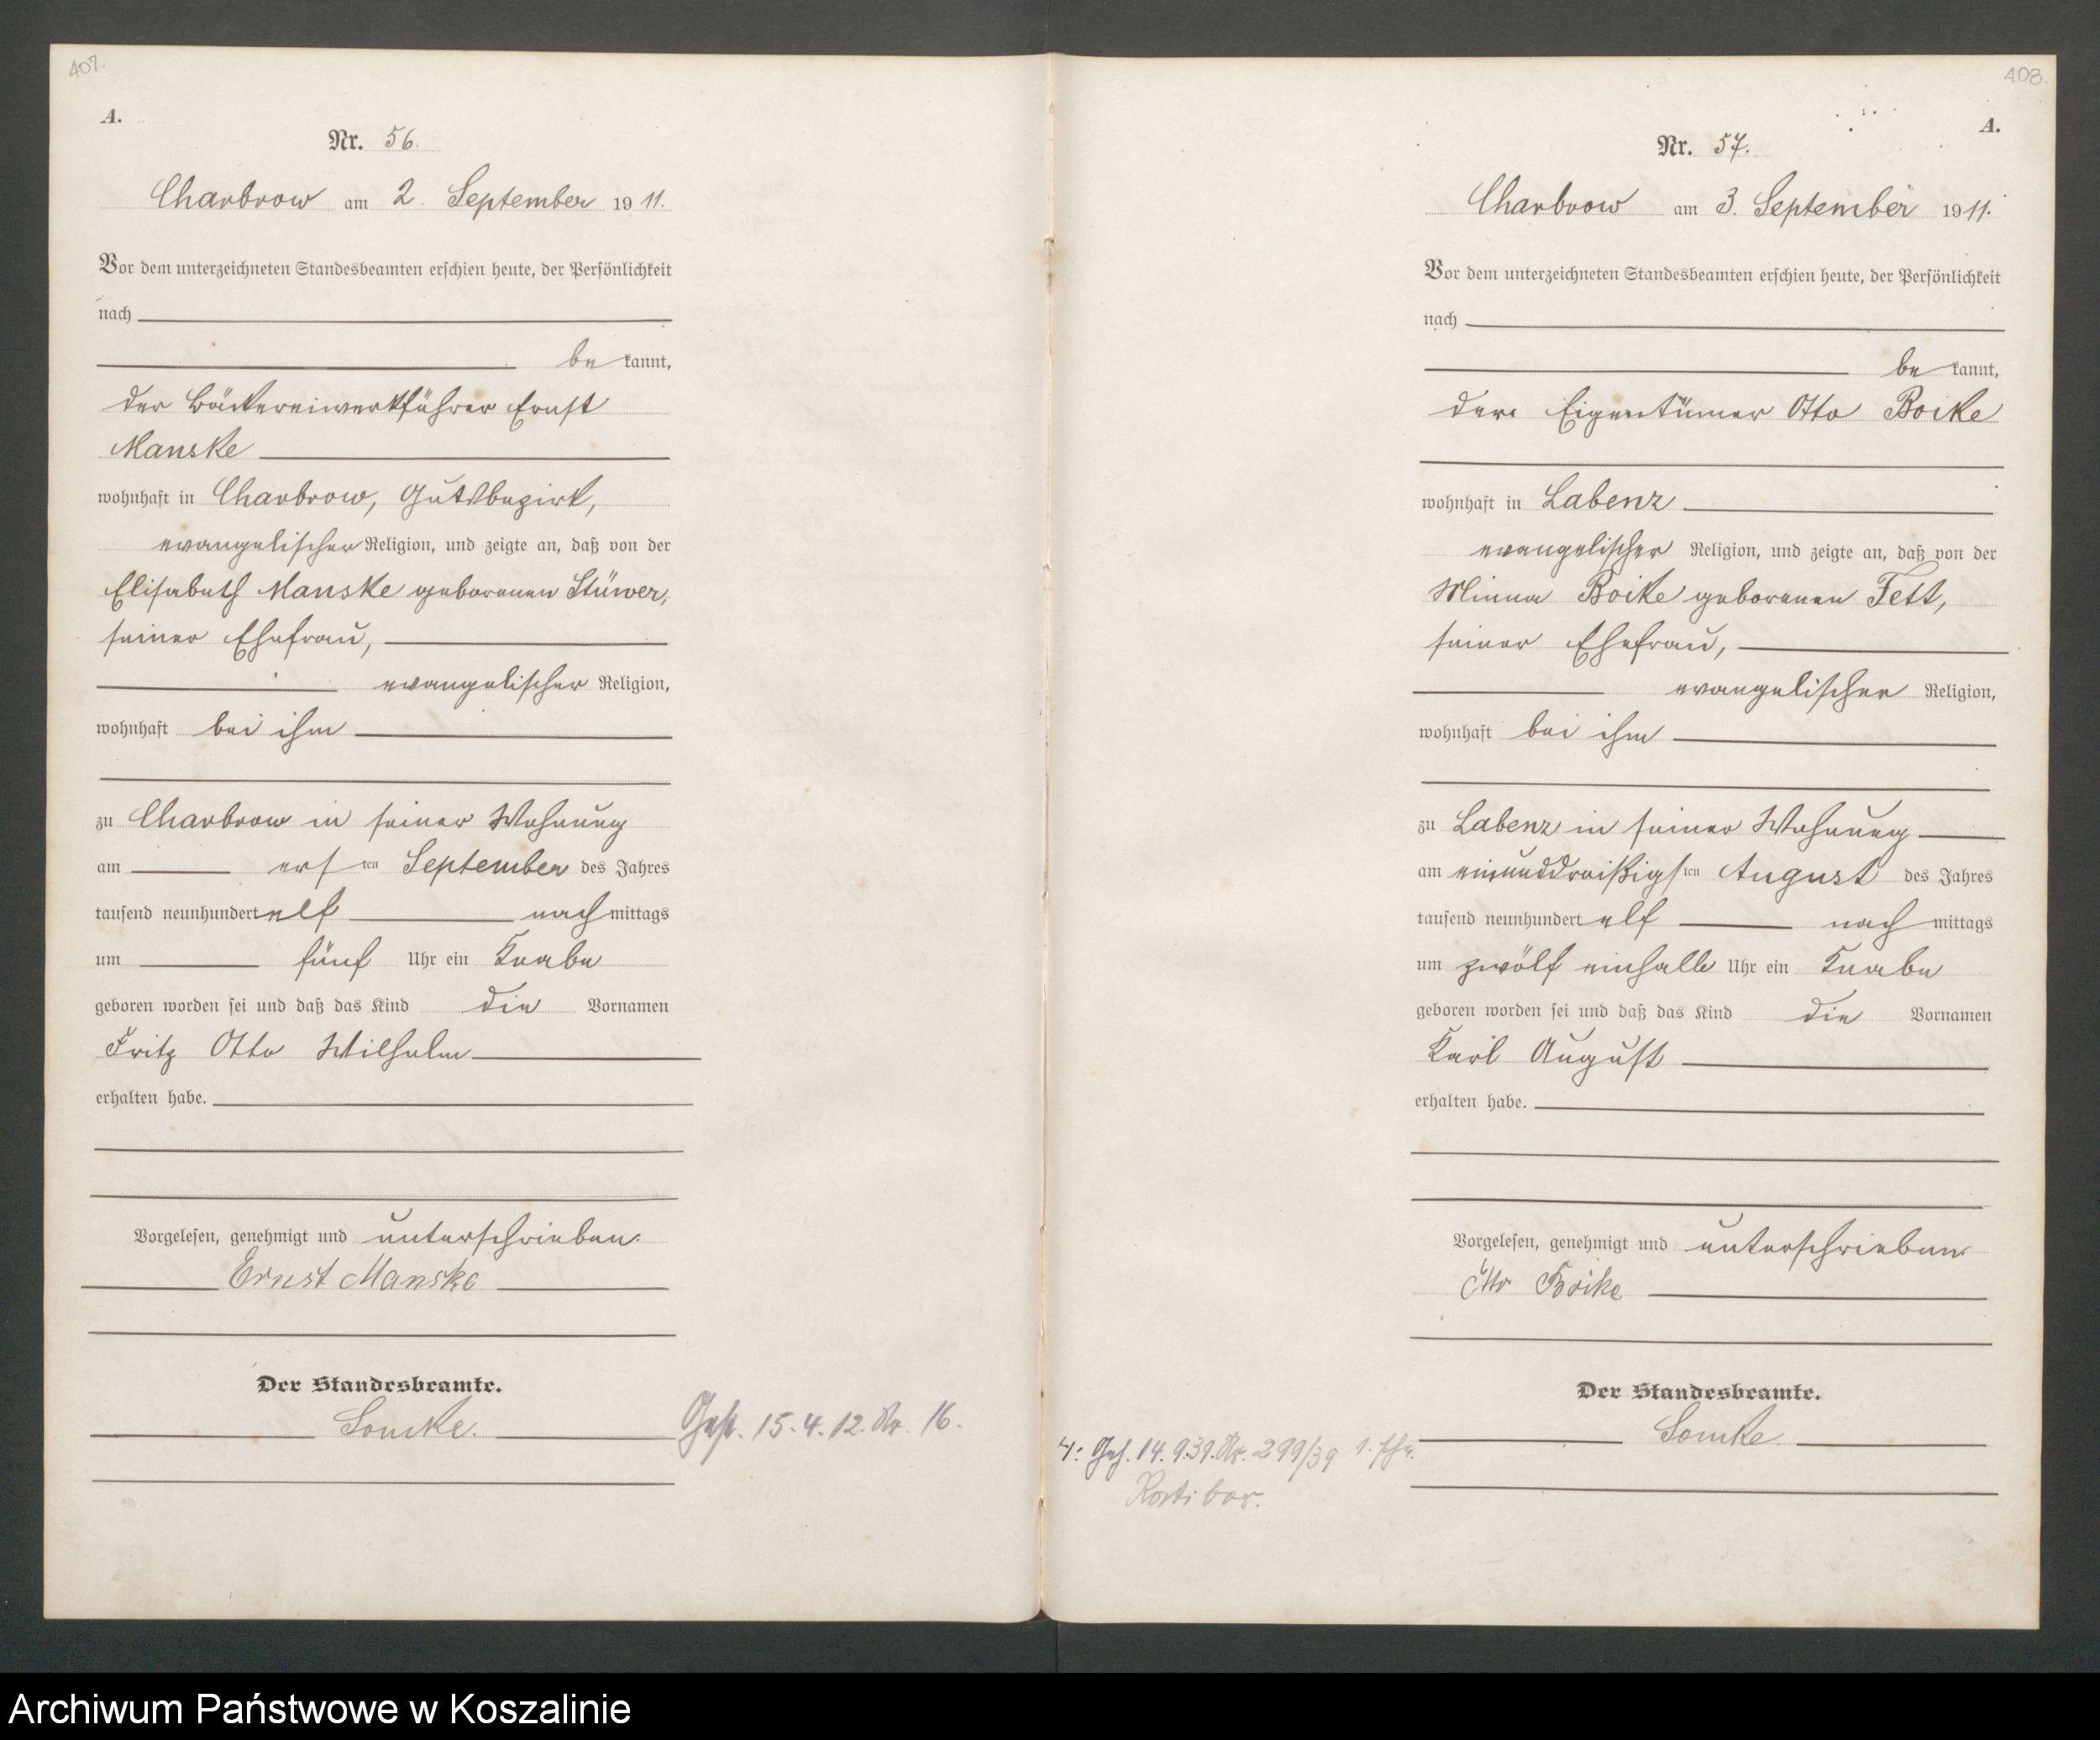 407.
A.
Nr. 56.
Charbrow am 2. September 1911.
Vor dem unterzeichneten Standesbeamten erschien heute, der Persönlichkeit
nach
be kannt,
der Bäckereiwerkführer Ernst
Manske
wohnhaft in Charbrow, Gutsbezirk,
evangelischer Religion, und zeigte an, daß von der
Elisabeth Manske geborenen Stüwer,
seiner Ehefrau,
evangelischer Religion,
wohnhaft bei ihm
zu Charbrow in seiner Wohnung
am ersten September des Jahres
tausend neunhundert elf nach mittags
um fünf Uhr ein Knabe
geboren worden sei und daß das Kind die Vornamen
Fritz Otto Wilhelm
erhalten habe.
Vorgelesen, genehmigt und unterschrieben.
Ernst Manske
Der Standesbeamte.
15.4.12. Nr. 16.
408.
A.
Nr. 57.
Charbrow am 3. September 1911.
Vor dem unterzeichneten Standesbeamten erschien heute, der Persönlichkeit
nach
be kannt,
der Eigentümer Otto Boike
wohnhaft in Labenz
evangelischer Religion, und zeigte an, daß von der
Minna Boike geborenen Fett,
seiner Ehefrau,
evangelischer Religion,
wohnhaft bei ihm
zu Labenz in seiner Wohnung
am einunddreißigsten August des Jahres
tausend neunhundert elf nach mittags
um zwölf einhalb Uhr ein Knabe
geboren worden sei und daß das Kind die Vornamen
Karl August
erhalten habe.
Vorgelesen, genehmigt und unterschrieben
Otto Boike
Der Standesbeamte.
14.9.39. Nr. 299/39
Archiwum Państwowe w Koszalinie